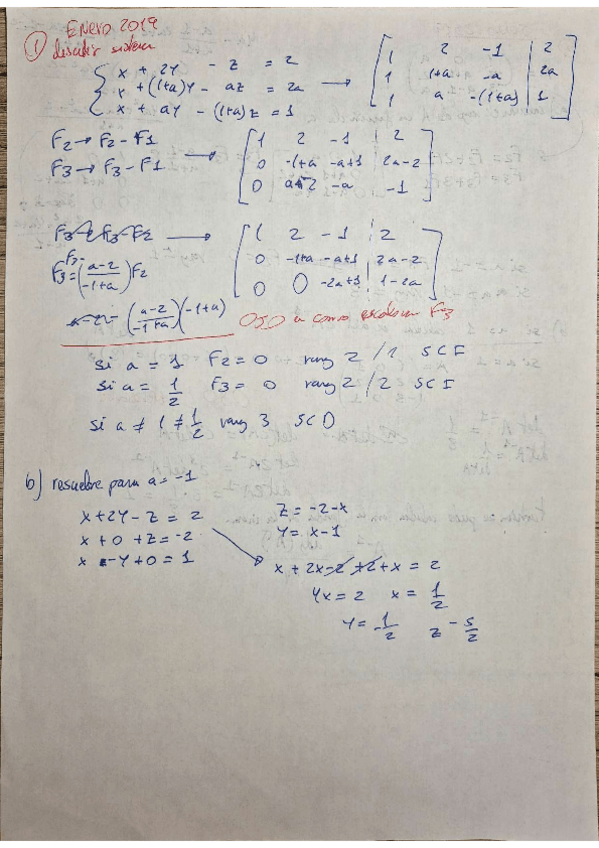 ENERO 2019
① discutir sistema
x + 2y - z = 2
x + (1+a)y - az = 2a
x + ay - (1+a)z = 1
→
1 2 -1 | 2
1 1+a -a | 2a
1 a -(1+a) | 1
F2 → F2 - F1
F3 → F3 - F1
→
1 2 -1 | 2
0 -1+a -a+1 | 2a-2
0 a-2 -a -1
F3 → F3 - F2 →
F3 = F3 - (a-2 / -1+a) F2
1 2 -1 | 2
0 -1+a -a+1 | 2a-2
0 0 -2a+1 | 1-2a
(a-2 / -1+a)(-1+a)
OJO a como escalonar F3
si a = 1 F2 = 0 rang 2 / 2 SCI
si a = 1/2 F3 = 0 rang 2 / 2 SCI
si a ≠ 1 ≠ 1/2 rang 3 SCD
b) resuelve para a = -1
x + 2y - z = 2
x + 0 + z = -2
x - y + 0 = 1
z = -2 - x
y = x - 1
x + 2x - 2 + 2 + x = 2
4x = 2 x = 1/2
y = -1/2 z - 5/2